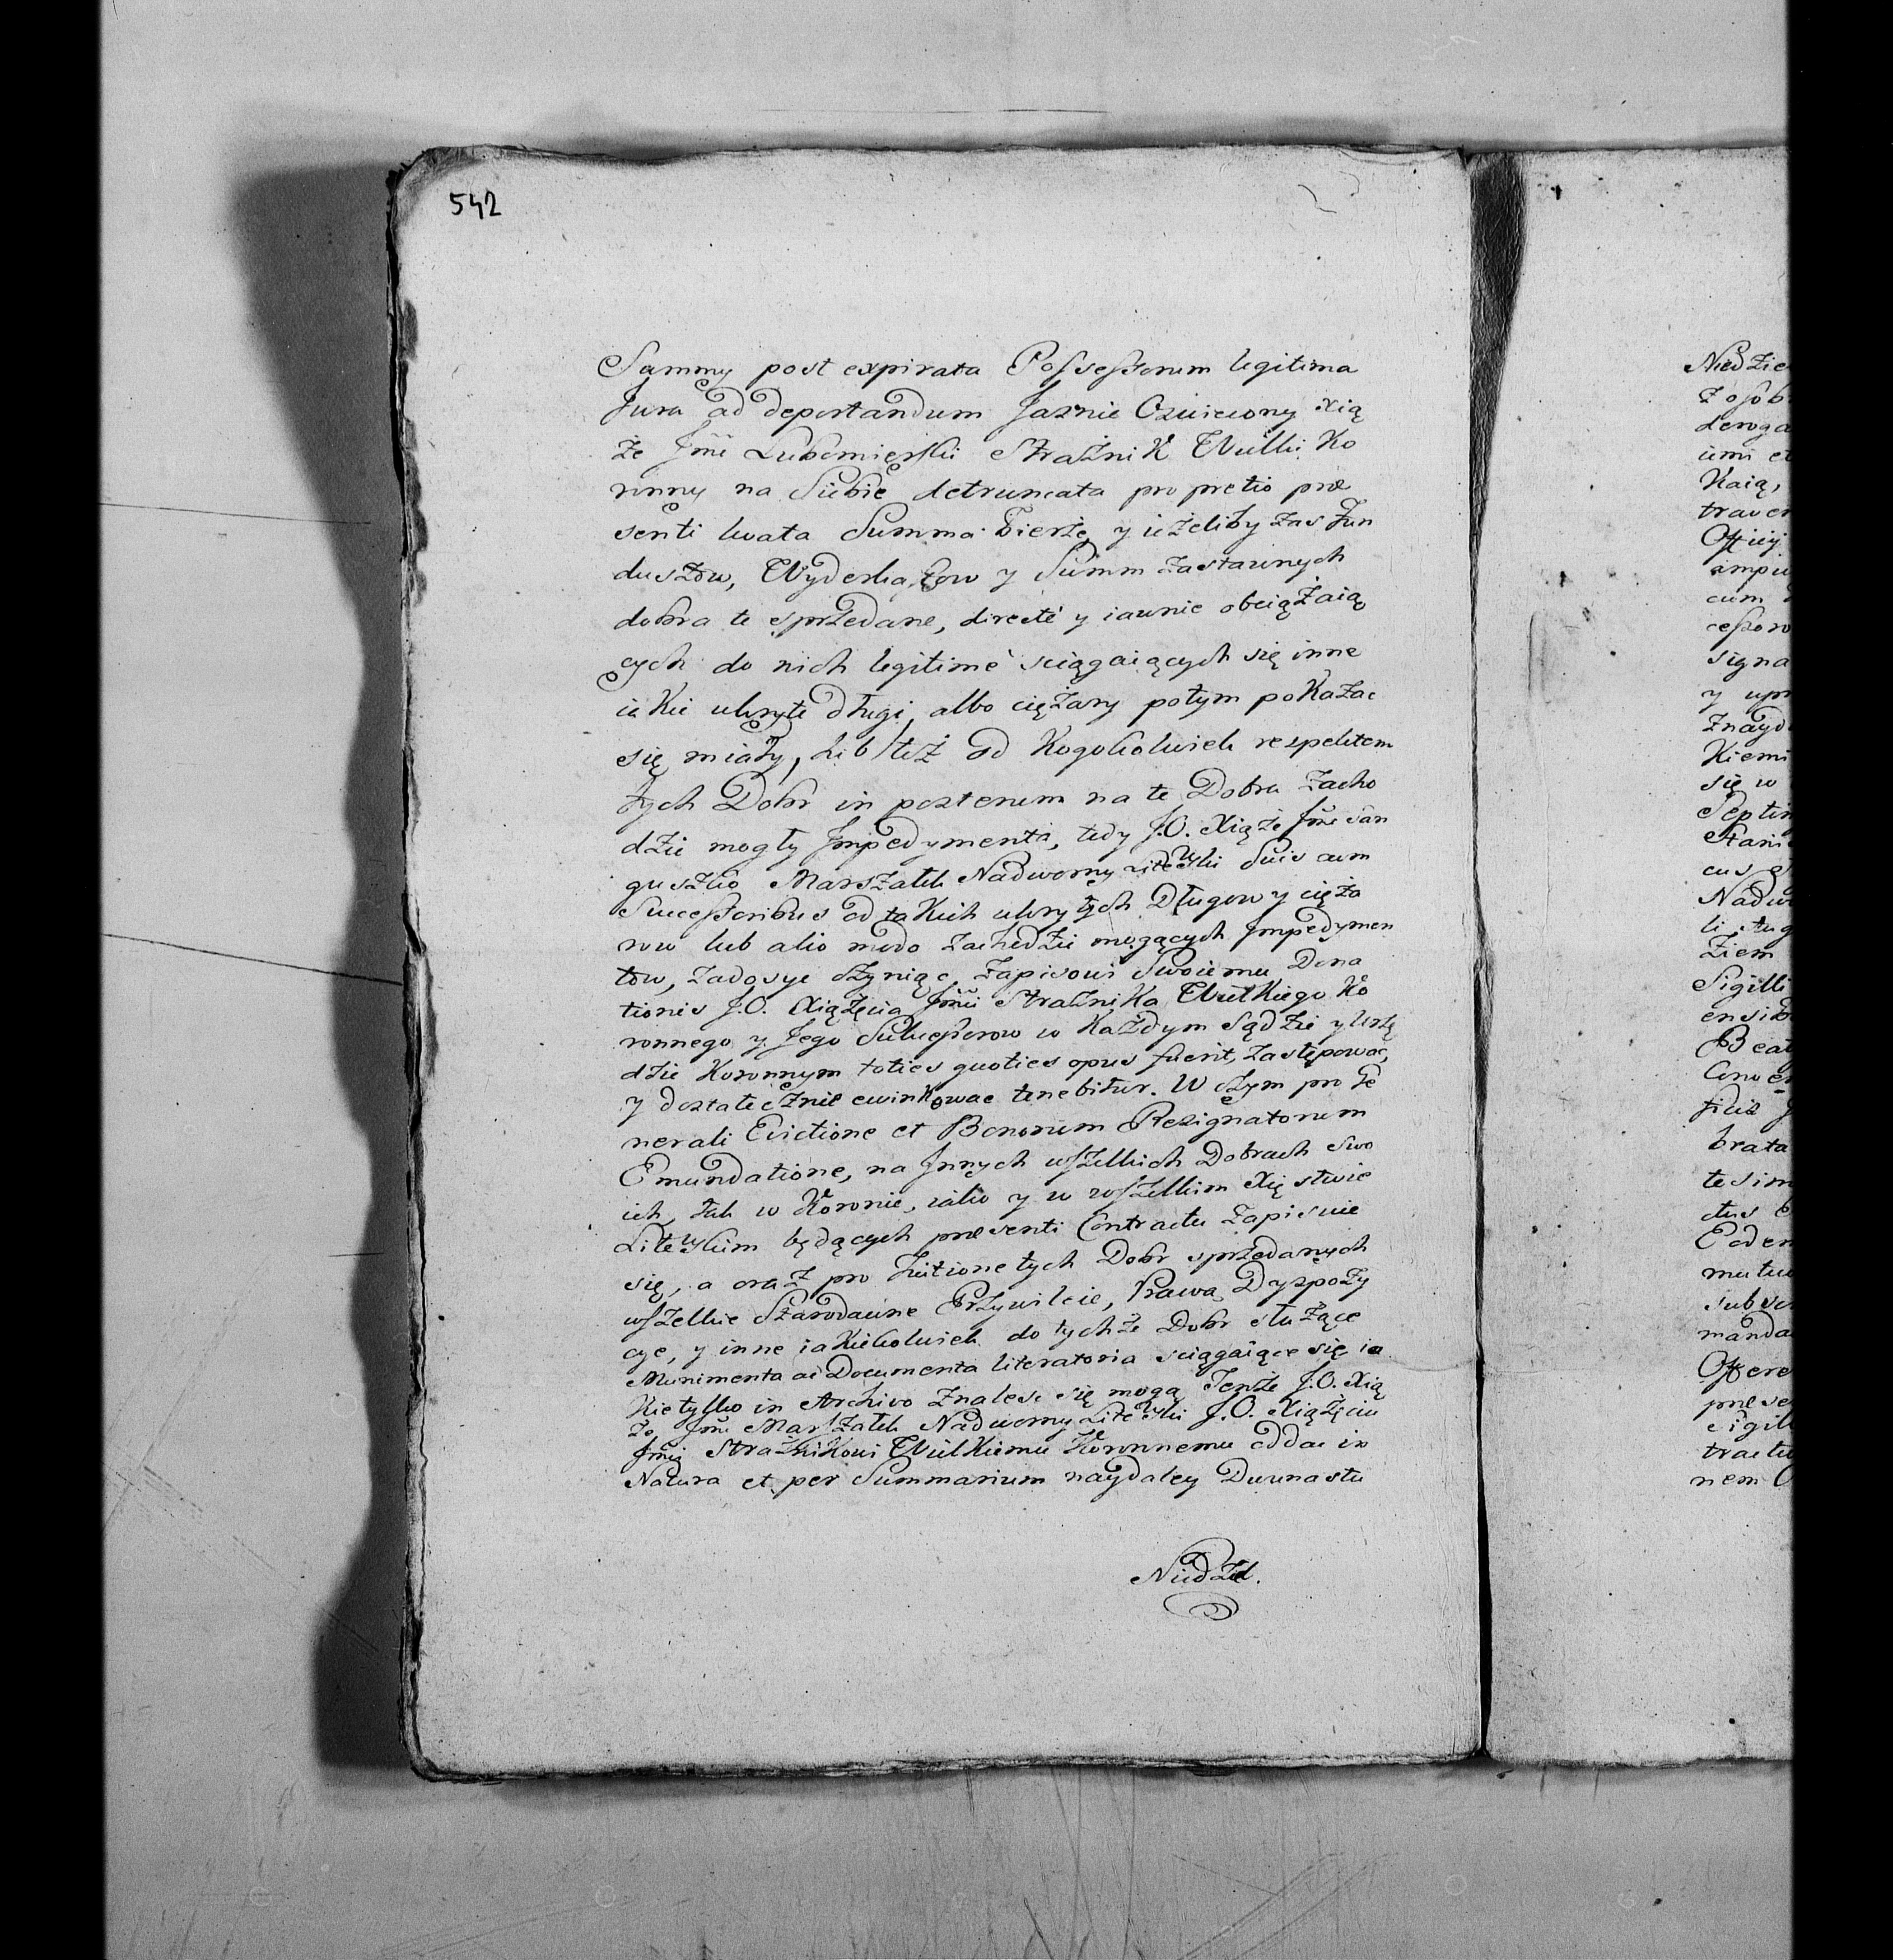 542
Sammy post expirata Possessorum legitima
Jura ad deportandum Jasnie Oswiecony Xią
że Jmć Lubomierski Strażnik Wielki Ko
ronny na Siebie detruncata pro pretio præ
senti kwata Summa bierze, y ieżeliby zas Fun
duszow, Wyderkafow y Summ zastawnych
dobra te sprzedane, directé y iawnie obciążaią
cych do nich legitimé sciągaiących się inne
iakie ukryte długi, albo ciężary potym pokazac
się miały, lub też od kogokolwiek respektem
tych Dobr in posterum na te Dobra zacho
dzic mogły Jmpedymenta, tedy J.O. Xiąże Jmć San
guszko Marszałek Nadworny Litewski Suis cum
Successoribus od takich ukrytych Długow y cięża
row lub alio modo zachodzic mogących Jmpedymen
tow, zadosyc czyniąc zapisowi Swoiemu Dona
tionis J.O. Xiążęcia Jmći Strażnika Wielkiego Ko
ronnego y Jego Sukcessorow w każdym Sądzie y Urzę
dzie Koronnym toties quoties opus fuerit, zastępowac,
y dostatecznie ewinkowac tenebitur. W czym pro Ge
nerali Evictione et Bonorum Resignatorum
Emundatione, na Jnnych wszelkich Dobrach swo
ich, tak w Koronie, iako y w wszelkim Xięstwie
Litewskim będących præsenti Contractu zapisuie
się, a oraz pro Tuitione tych Dobr sprzedanych
wszelkie Starodawne Przywileie, Prawa, Dyspozy
cye, y inne iakiekolwiek do tychże Dobr służące
Munimenta ac Documenta literatoria sciągaiące się ia
kie tylko in Archivo znalesc się mogą Tenże J.O. Xią
że Jmć Marszałek Nadworny Litewski J.O. Xiążęciu
Jmći Strażnikowi Wielkiemu Koronnemu oddac in
Natura et per Summarium naydaley Dwunastu
Niedziel.
Niedzie
z osob
deroga
iemi et
kaią,
traven
Officij
impu
cum
cessoro
signa
y upr
znayd
kiemi
się w
Septim
Stani
cus
Nadw
li
ziem
Sigilli
ensib
Beat
brata
tesim
ctus
Eoden
mutu
subsc
manda
Offere
præse
sigill
tractu
nem